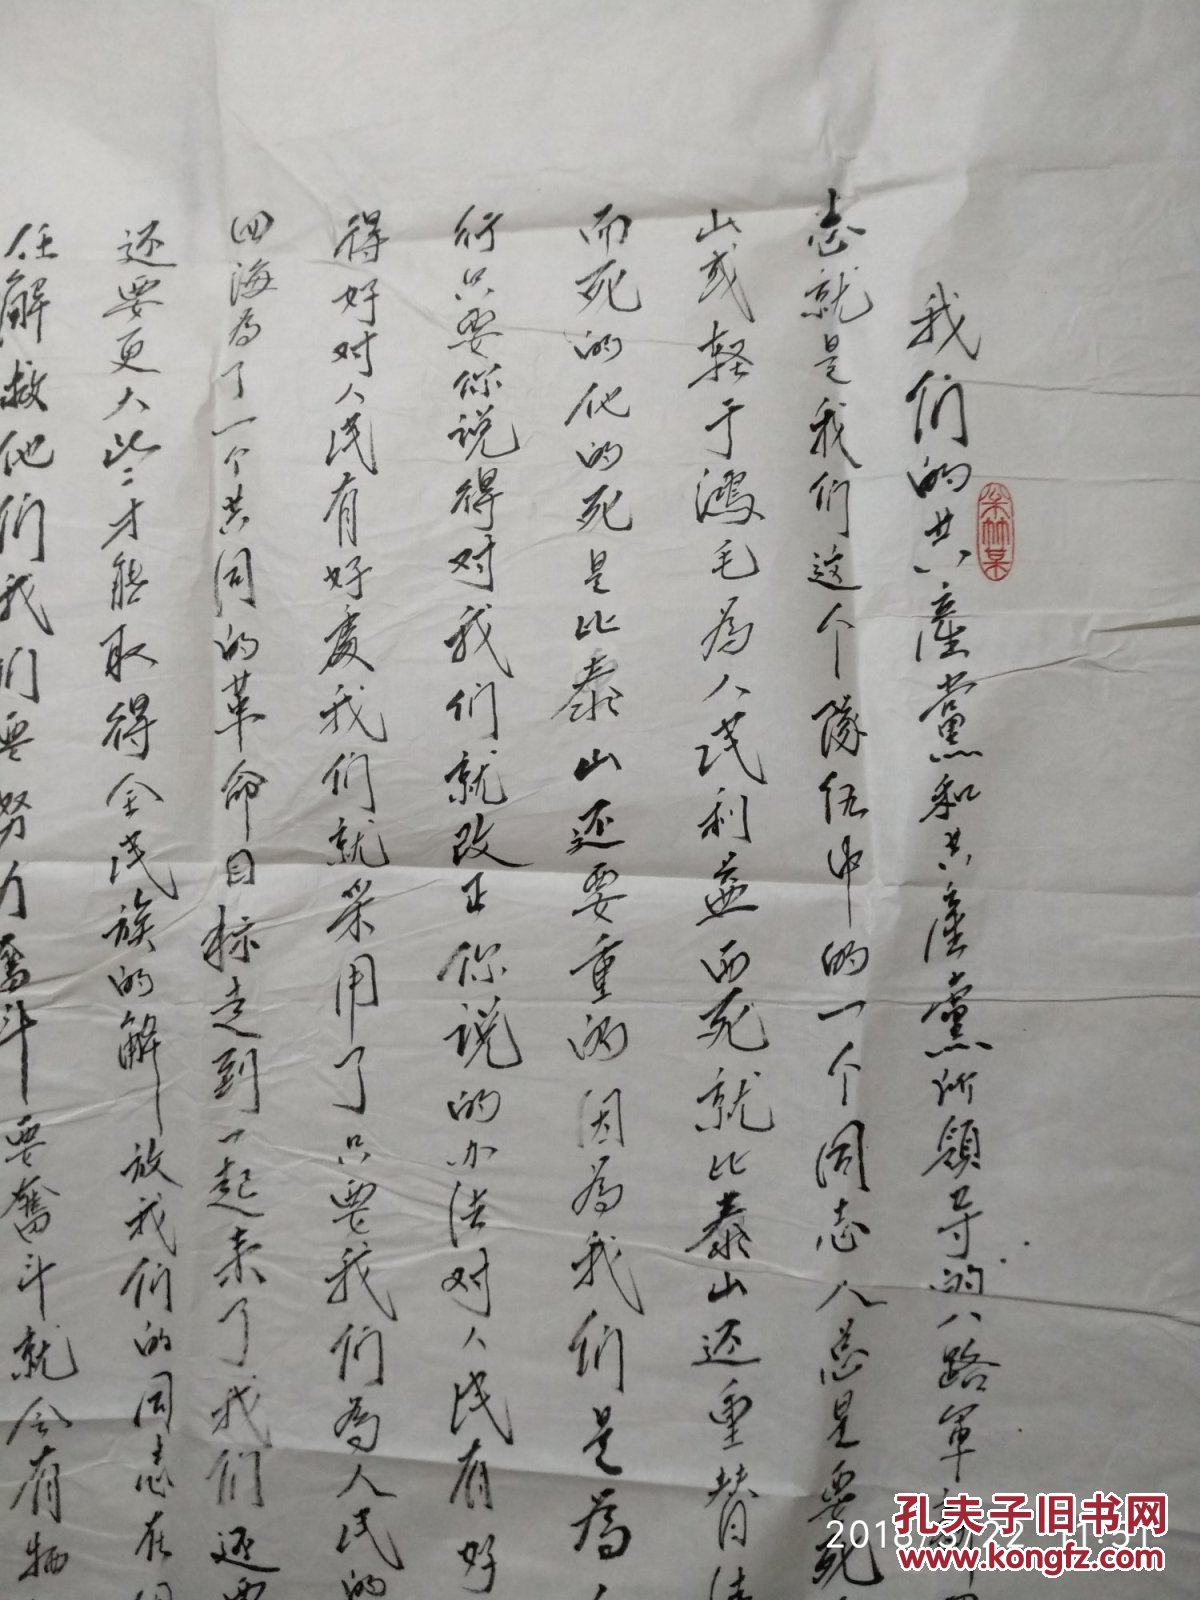 我们的共产党和共产党所领导的八路军新四
志就是我们这个队伍中的一个同志人总是要死
山或轻于鸿毛为人民利益而死就比泰山还重替法
而死的他的死是比泰山还要重的因为我们是为
行只要你说得对我们就改正你说的办法对人民有好
得好对人民有好处我们就采用了只要我们为人民的
四海为了一个共同的革命目标走到一起来了我们还要
还要更大些才能取得全民族的解放我们的同志在困
任解救他们我们要努力奋斗要奋斗就会有牺
孔夫子旧书网
www.kongfz.com